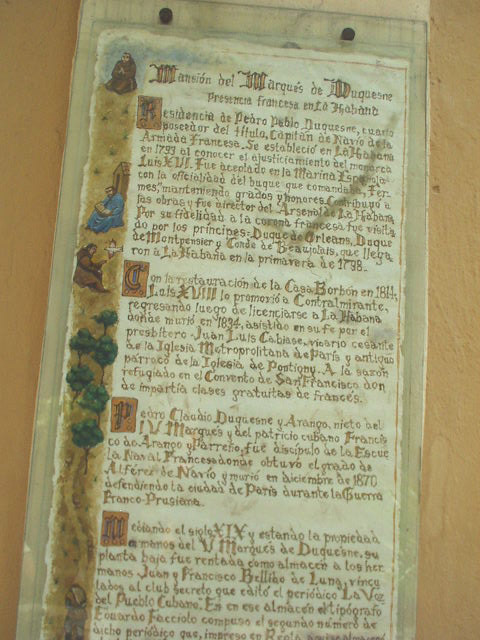 Mansión del Marqués de Duquesne
Presencia francesa en La Habana
Residencia de Pedro Pablo Duquesne, cuarto
poseedor del título, Capitán de Navío de la
Armada Francesa. Se estableció en La Habana
en 1793 al conocer el ajusticiamiento del monarca
Luis XVI. Fue aceptado en la Marina Española
con la oficialidad del buque que comandaba, Fer-
mes, manteniendo grados y honores. Contribuyó a
las obras y fue director del Arsenal de La Habana
Por su fidelidad a la corona francesa fue visita
do por los príncipes: Duque de Orleans, Duque
de Montpensier y Conde de Beaujolais, que llega
ron a La Habana en la primavera de 1798.
Con la restauración de la Casa Borbón en 1814,
Luis XVIII lo promovió a Contralmirante,
regresando luego de licenciarse a La Habana
donde murió en 1834, asistido en su fe por el
presbítero Juan Luis Cabiase, vicario cesante
de la Iglesia Metropolitana de París y antiguo
párroco de la Iglesia de Pontigny. A la sazón
refugiado en el Convento de San Francisco don
de impartía clases gratuitas de francés.
Pedro Claudio Duquesne y Arango, nieto del
IV Marqués y del patricio cubano Francis
co de Arango y Parreño, fue discípulo de la Escue
la Naval Francesa donde obtuvo el grado de
Alférez de Navío y murió en diciembre de 1870
defendiendo la ciudad de París durante la Guerra
Franco-Prusiana.
Mediando el siglo XIX y estando la propiedad
a manos del V Marqués de Duquesne, su
planta baja fue rentada como almacén a los her
manos Juan y Francisco Bellido de Luna, vincu
lados al club secreto que editó el periódico La Voz
del Pueblo Cubano. En ese almacén el tipógrafo
Eduardo Facciolo compuso el segundo número de
dicho periódico que, impreso en Regla,